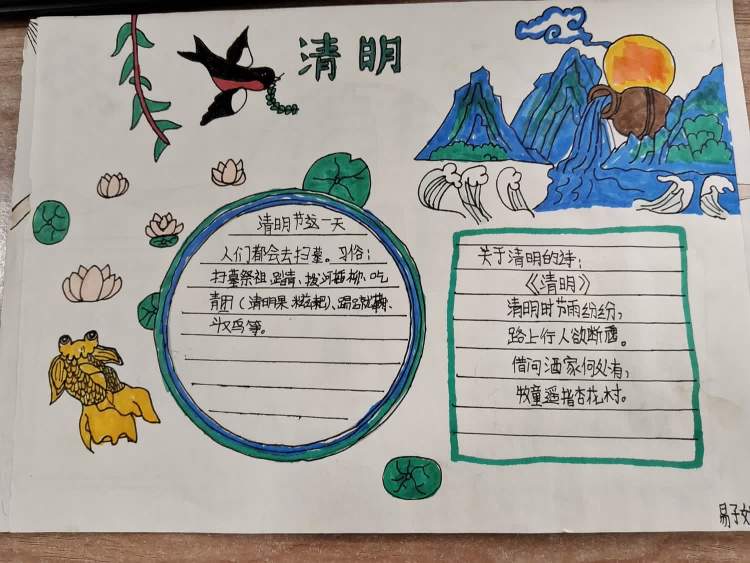 清明
清明节这一天
人们都会去扫墓。习俗:
扫墓祭祖、踏青、拔河、插柳、吃
青团(清明果、糍粑)、踢蹴鞠、
斗鸡等。
关于清明的诗:
《清明》
清明时节雨纷纷,
路上行人欲断魂。
借问酒家何处有,
牧童遥指杏花村。
易子文